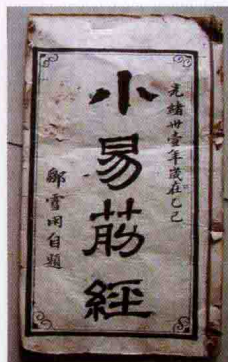 光緒卅壹年歲在乙巳
小易筋經
鄒雪雨自題